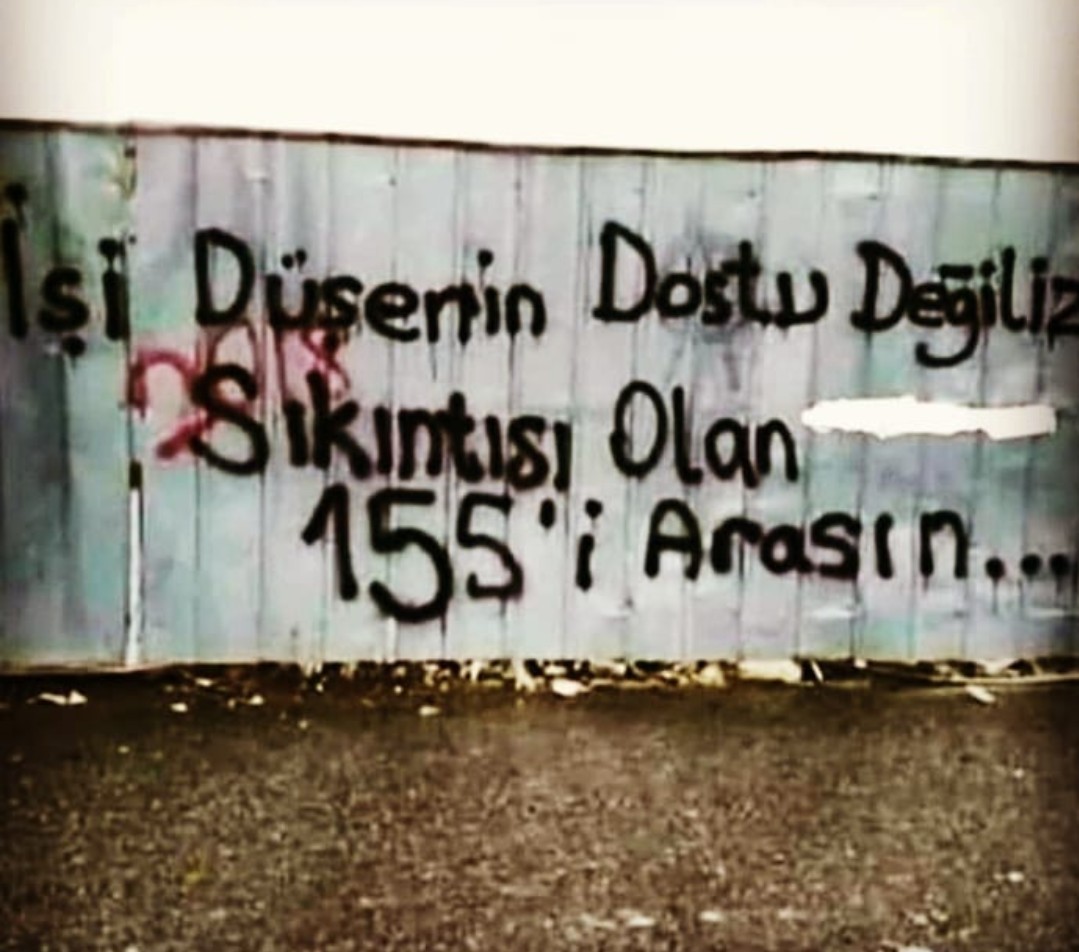 İşi Düsenin Dostu Değiliz
Sıkıntısı Olan
155'i Arasın...